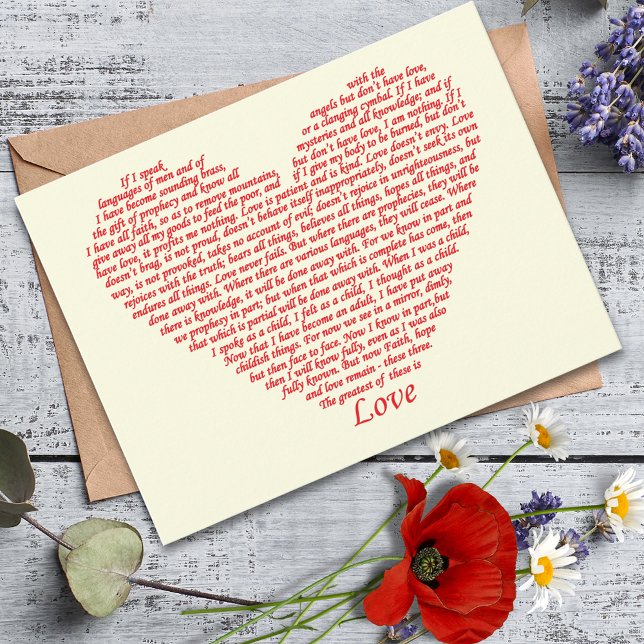 If I speak with the
languages of men and of angels but don't have love,
I have become sounding brass, or a clanging cymbal. If I have
the gift of prophecy and know all mysteries and all knowledge; and if
I have all faith, so as to remove mountains, but don't have love, I am nothing. If I
give away all my goods to feed the poor, and if I give my body to be burned, but don't
have love, it profits me nothing. Love is patient and is kind. Love doesn't envy. Love
doesn't brag, is not proud, doesn't behave itself inappropriately, doesn't seek its own
way, is not provoked, takes no account of evil; doesn't rejoice in unrighteousness, but
rejoices with the truth; bears all things, believes all things, hopes all things, and
endures all things. Love never fails. But where there are prophecies, they will be
done away with. Where there are various languages, they will cease. Where
there is knowledge, it will be done away with. For we know in part and
we prophesy in part; but when that which is complete has come, then
that which is partial will be done away with. When I was a child,
I spoke as a child, I felt as a child, I thought as a child.
Now that I have become an adult, I have put away
childish things. For now we see in a mirror, dimly,
but then face to face. Now I know in part, but
then I will know fully, even as I was also
fully known. But now Faith, hope
and love remain - these three.
The greatest of these is
Love